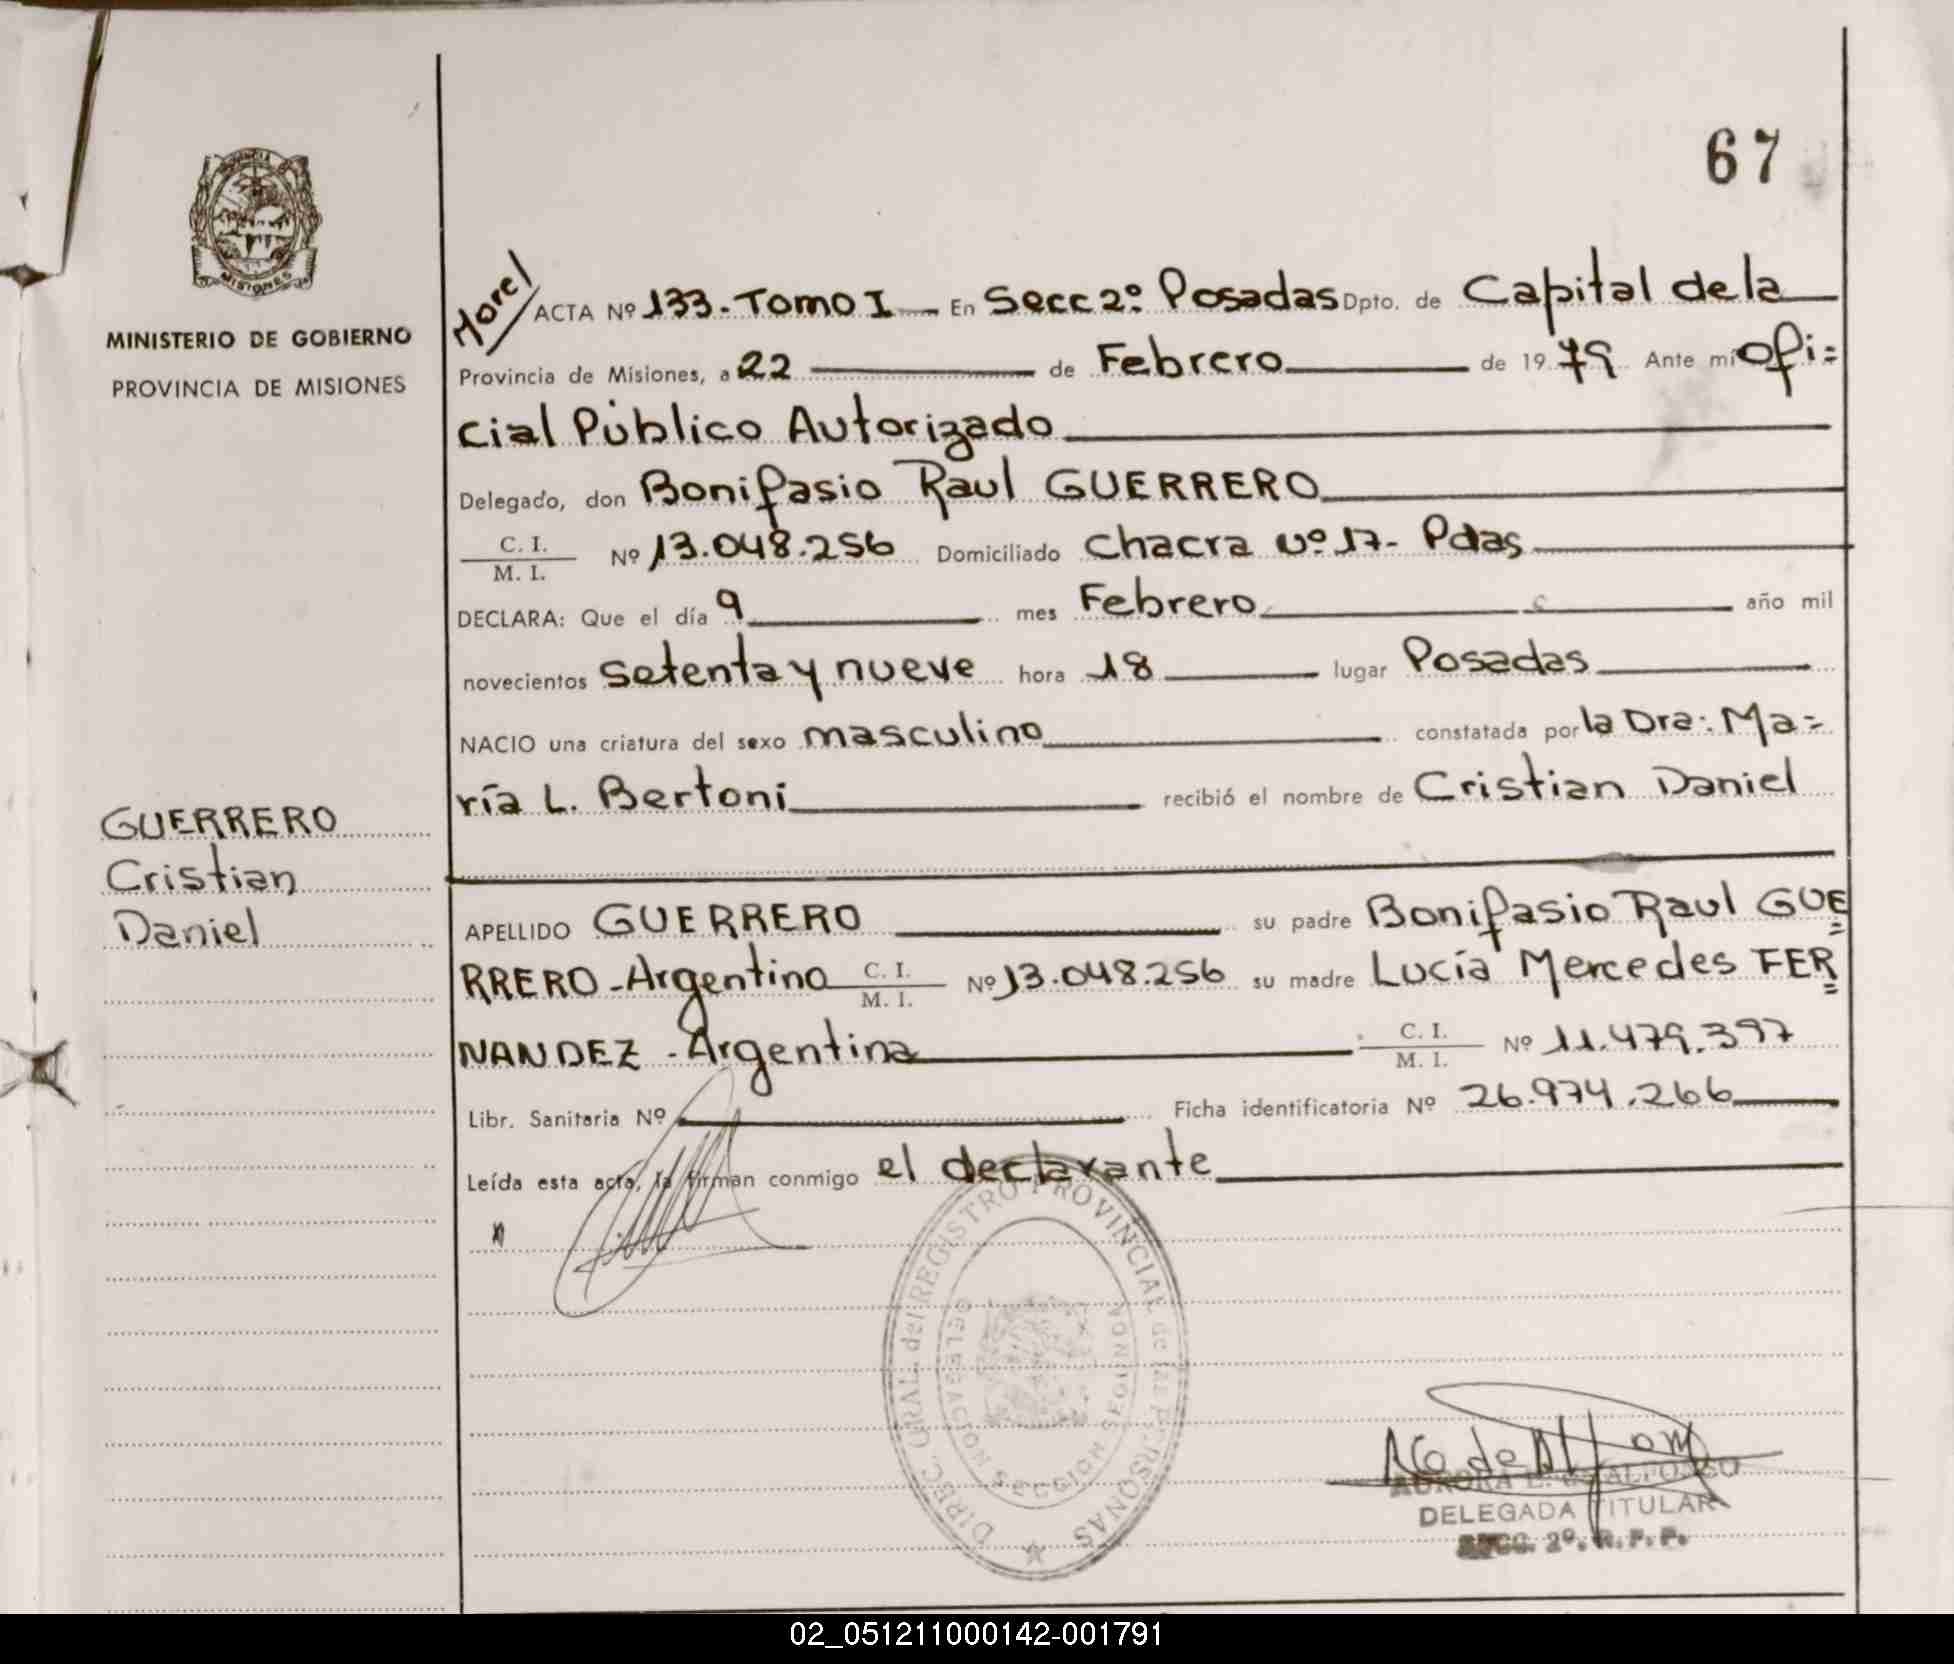 67
PROVINCIA
MISIONES
MINISTERIO DE GOBIERNO
PROVINCIA DE MISIONES
GUERRERO
Cristian
Daniel
Morel/
ACTA Nº 133.- Tomo I — En Secc 2º: Posadas Dpto. de Capital de la
Provincia de Misiones, a 22 de Febrero de 1979 Ante mi Ofi=
cial Público Autorizado
Delegado, don Bonifasio Raul GUERRERO
C. I.
M. I.
Nº 13.048.256 Domiciliado Chacra Nº 17- Pdas
DECLARA: Que el día 9 mes Febrero año mil
novecientos setenta y nueve hora 18 lugar Posadas
NACIO una criatura del sexo masculino constatada por la Dra: Ma=
ría L. Bertoni recibió el nombre de Cristian Daniel
APELLIDO GUERRERO su padre Bonifasio Raul GUE
RRERO-Argentino C. I. M. I. Nº 13.048.256 su madre Lucía Mercedes FER
NANDEZ - Argentina C. I. M. I. Nº 11.479.397
Libr. Sanitaria Nº Ficha identificatoria Nº 26.974.266
Leída esta acta, la firman conmigo el declarante
DIREC. GRAL. del REGISTRO PROVINCIAL de las PERSONAS
DELEGACION SECCION SEGUNDA
AURORA E. de ALFONSO
DELEGADA TITULAR
SECC. 2º. R. P. P.
02_051211000142-001791